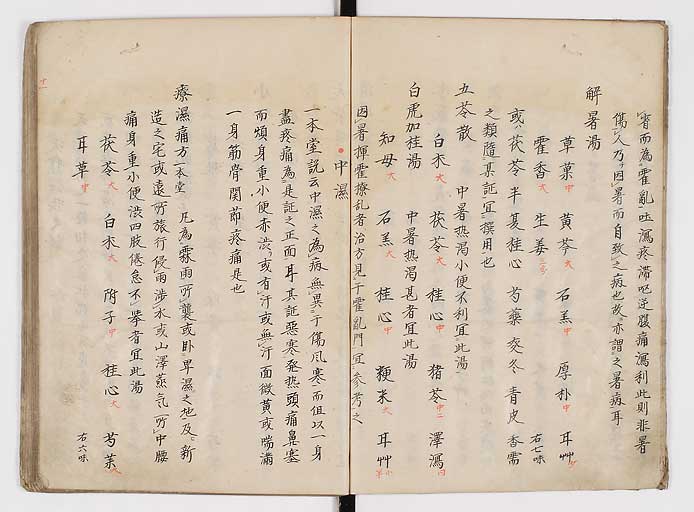 胃而為霍亂吐瀉疼滯呃逆腹痛瀉利此則非暑
傷人乃因暑而自致之病也故亦謂之暑病耳
解暑湯
草菓中 黄芩大 石羔 厚朴中 耳艸
藿香大 生姜 右七味
或茯苓半夏桂心芍藥麥冬青皮香需
之類隨其証宜撰用也
五苓散 中暑热渴小便不利宜此湯
白朮大 茯苓大 桂心中 猪苓中 澤瀉
白虎加桂湯 中暑热渴甚者宜此湯
知母大 石羔大 桂心中 粳米大 耳艸
因暑揮霍撩乱者治方見于霍亂門宜參考之
中濕
一本堂説云中濕之為病無異于傷風寒而但以一身
盡疼痛為是証之正面耳其証惡寒發热頭痛鼻塞
而煩身重小便赤渋或有汗或無汗面微黄或喘滿
一身筋骨関節疼痛是也
療濕痛方一本堂 凡為霖雨所襲或卧卑濕之地及新
造之宅或遠所旅行侵雨渉水或山澤蒸気所中腰
痛身重小便渋四肢倦怠不擧者宜此湯
茯苓大 白朮大 附子中 桂心大 芍藥
耳草中 右六味
十一